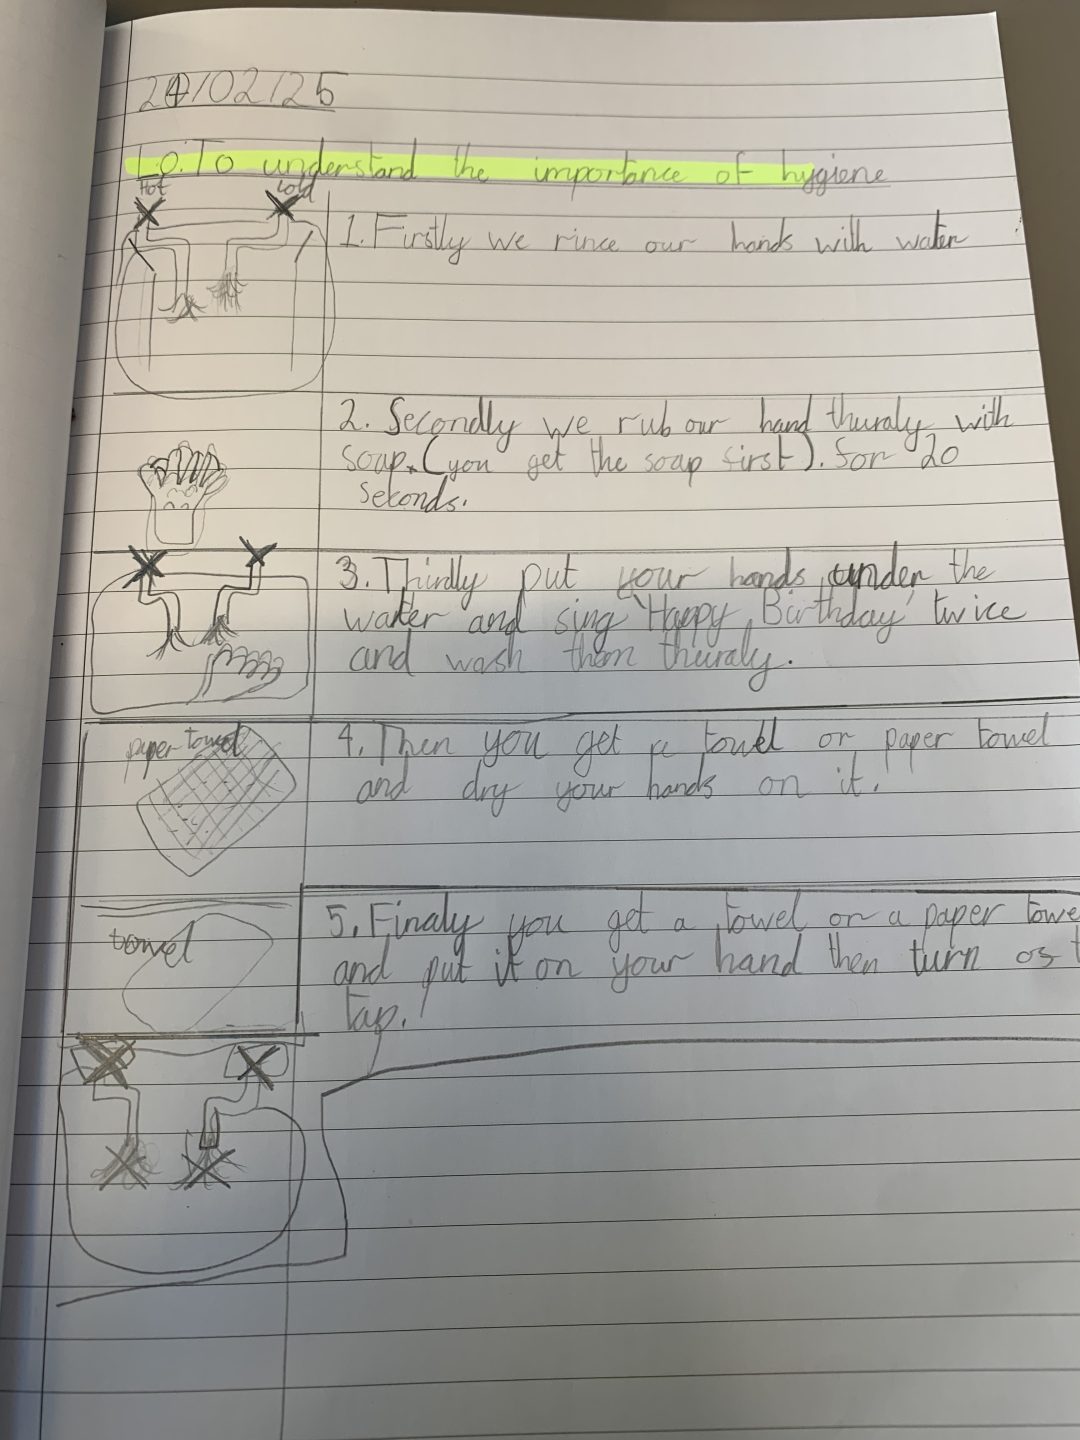 24/02/25
L.O. To understand the importance of hygiene
Hot
Cold
1. Firstly we rince our hands with water
2. Secondly we rub our hand thuraly with
soap. (you get the soap first). for 20
seconds.
3. Thirdly put your hands under the
water and sing 'Happy Birthday' twice
and wash them thuraly.
paper towel
4. Then you get a towel or paper towel
and dry your hands on it.
towel
5. Finaly you get a towel or a paper towe
and put it on your hand then turn os t
tap.